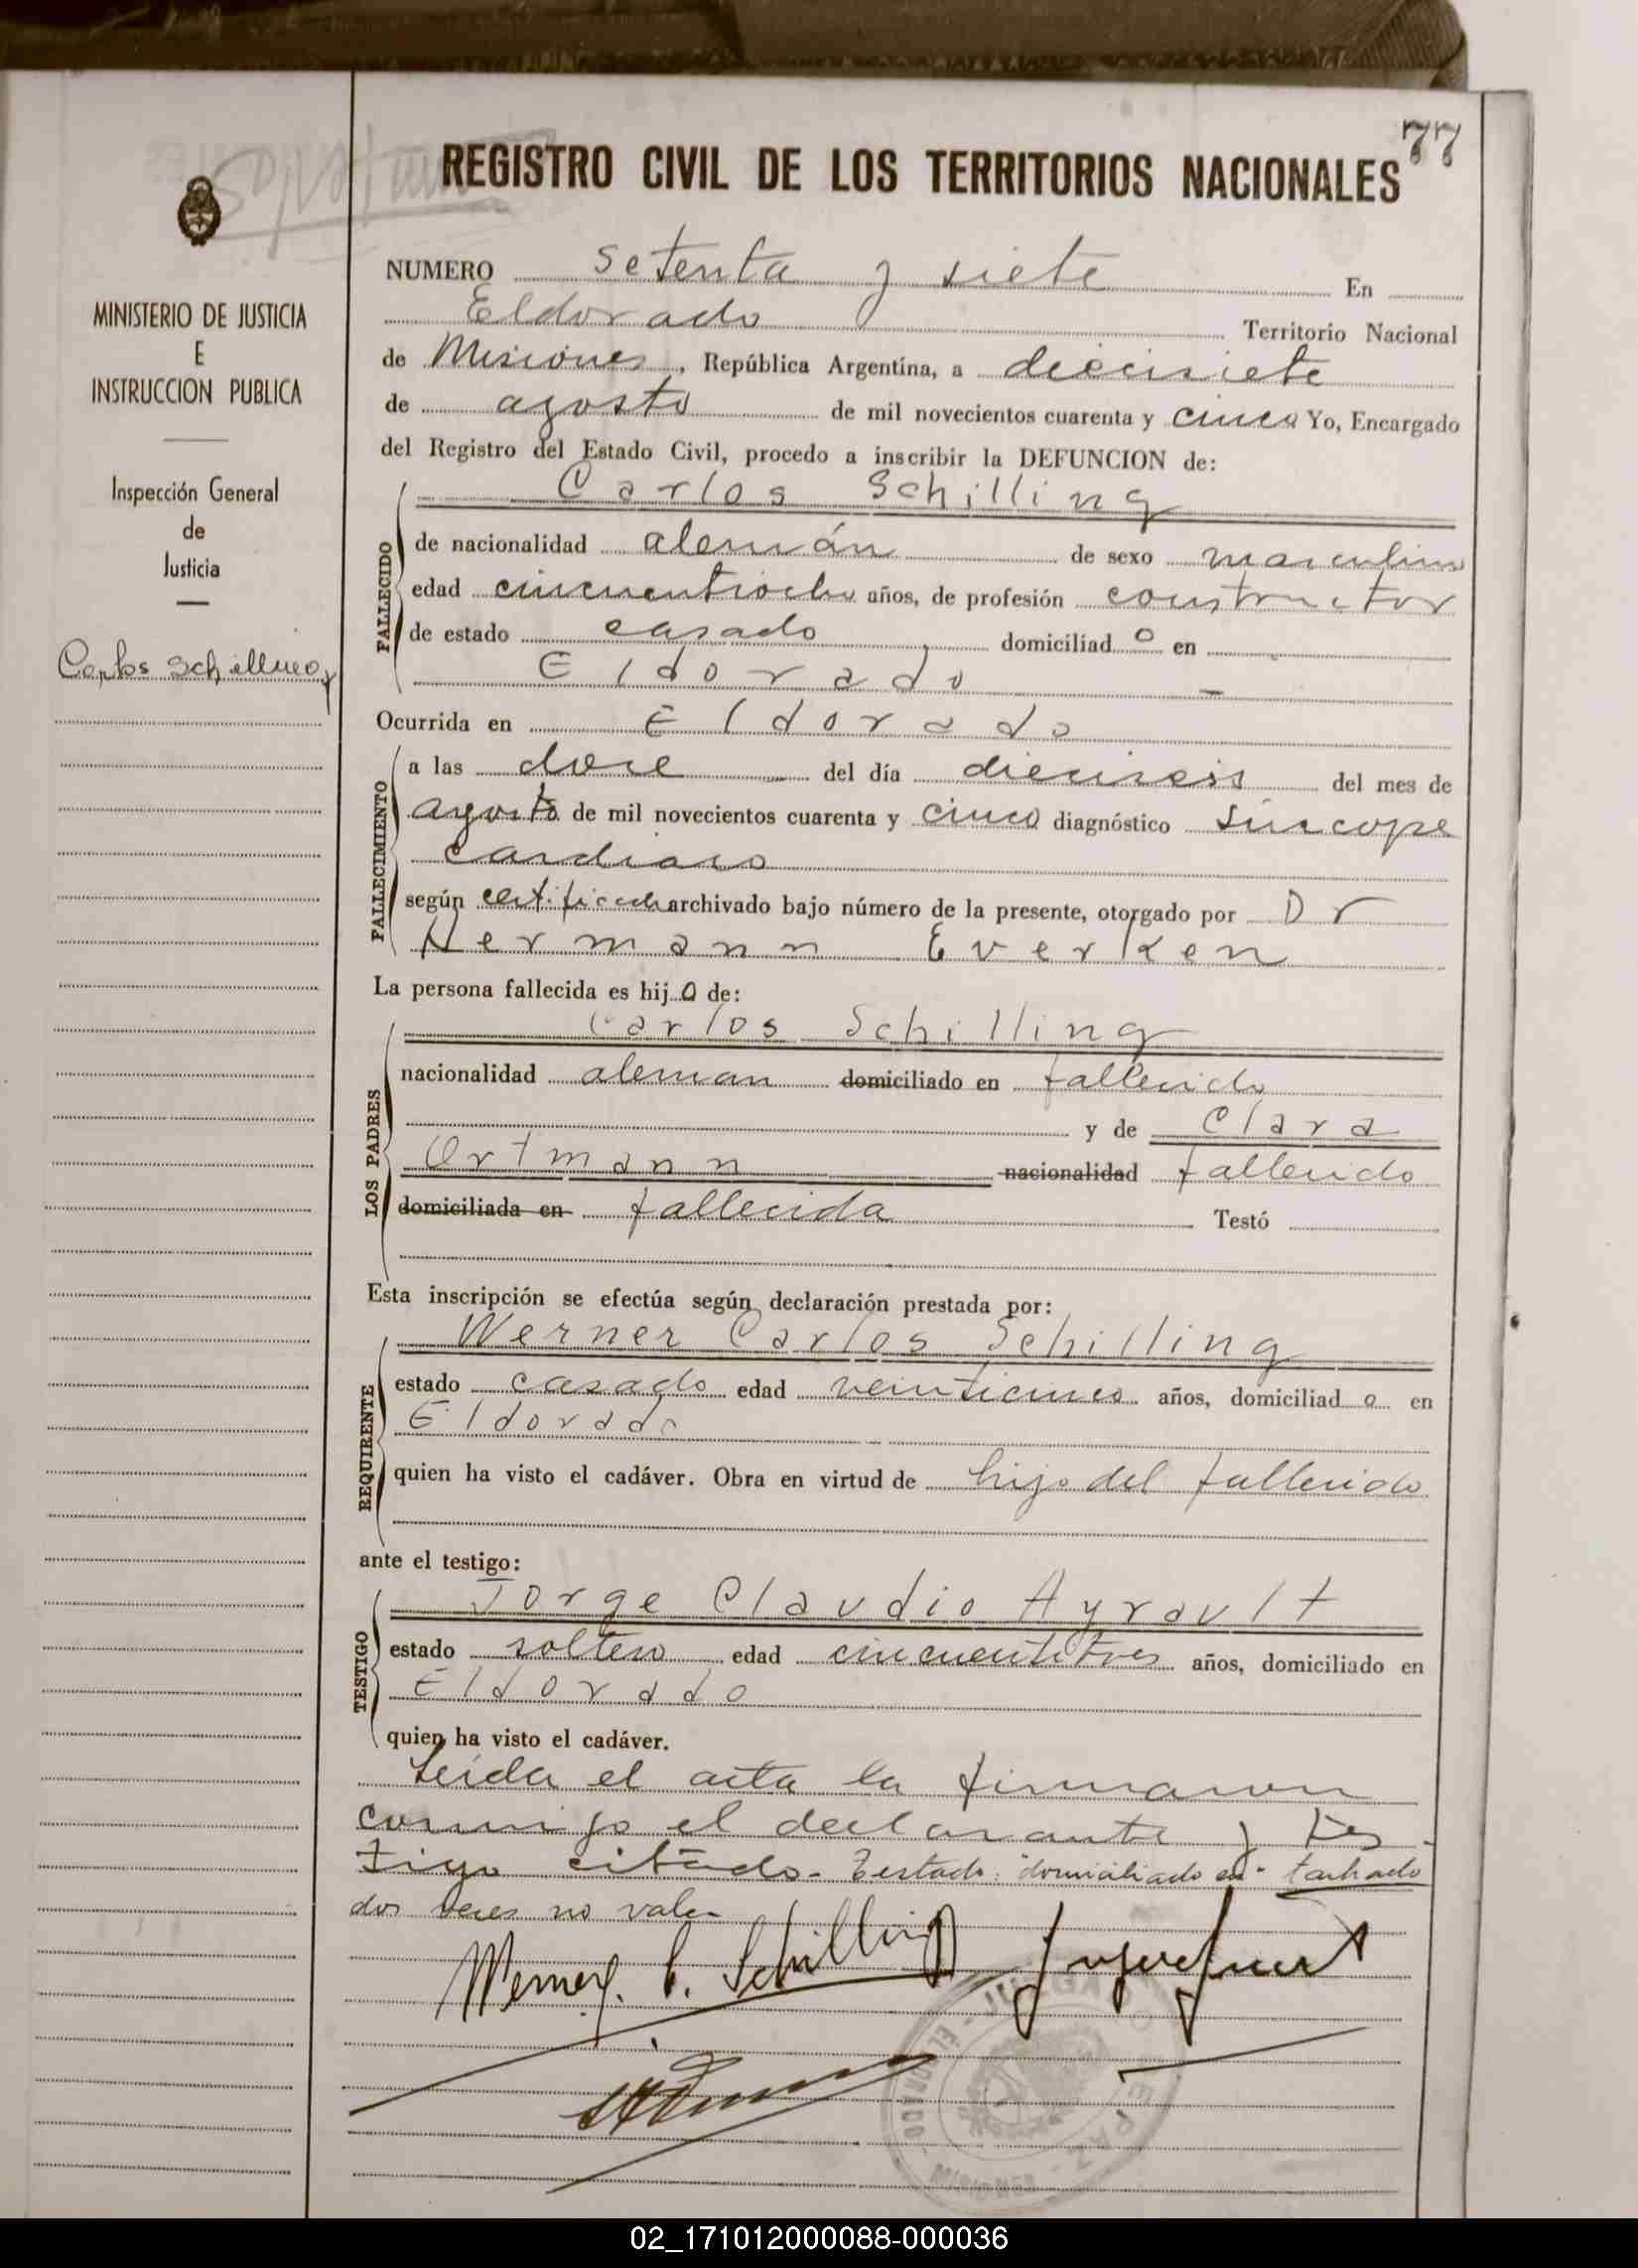 77
REGISTRO CIVIL DE LOS TERRITORIOS NACIONALES
MINISTERIO DE JUSTICIA
E
INSTRUCCION PUBLICA
Inspección General
de
Justicia
Carlos Schilling
NUMERO setenta y siete En
Eldorado Territorio Nacional
de Misiones, República Argentina, a diecisiete
de agosto de mil novecientos cuarenta y cinco Yo, Encargado
del Registro del Estado Civil, procedo a inscribir la DEFUNCION de:
Carlos Schilling
FALLECIDO
de nacionalidad alemán de sexo masculino
edad cincuentiocho años, de profesión constructor
de estado casado domiciliad o en
Eldorado
Ocurrida en Eldorado
FALLECIMIENTO
a las doce del día dieciseis del mes de
agosto de mil novecientos cuarenta y cinco diagnóstico síncope
cardiaco
según certificado archivado bajo número de la presente, otorgado por Dr
Hermann Everken
La persona fallecida es hij o de:
LOS PADRES
Carlos Schilling
nacionalidad aleman domiciliado en fallecido
y de Clara
Ortmann nacionalidad fallecido
domiciliada en fallecida Testó
Esta inscripción se efectúa según declaración prestada por:
REQUIRENTE
Werner Carlos Schilling
estado casado edad veinticinco años, domiciliad o en
Eldorado
quien ha visto el cadáver. Obra en virtud de hijo del fallecido
ante el testigo:
TESTIGO
Jorge Claudio Ayrault
estado soltero edad cincuentitres años, domiciliado en
Eldorado
quien ha visto el cadáver.
Leída el acta la firmaron
conmigo el declarante y tes-
tigo citado.- Testado: "domiciliado en" tachado
dos veces no vale-
Werner C. Schilling
ELDORADO
MISIONES
02_171012000088-000036